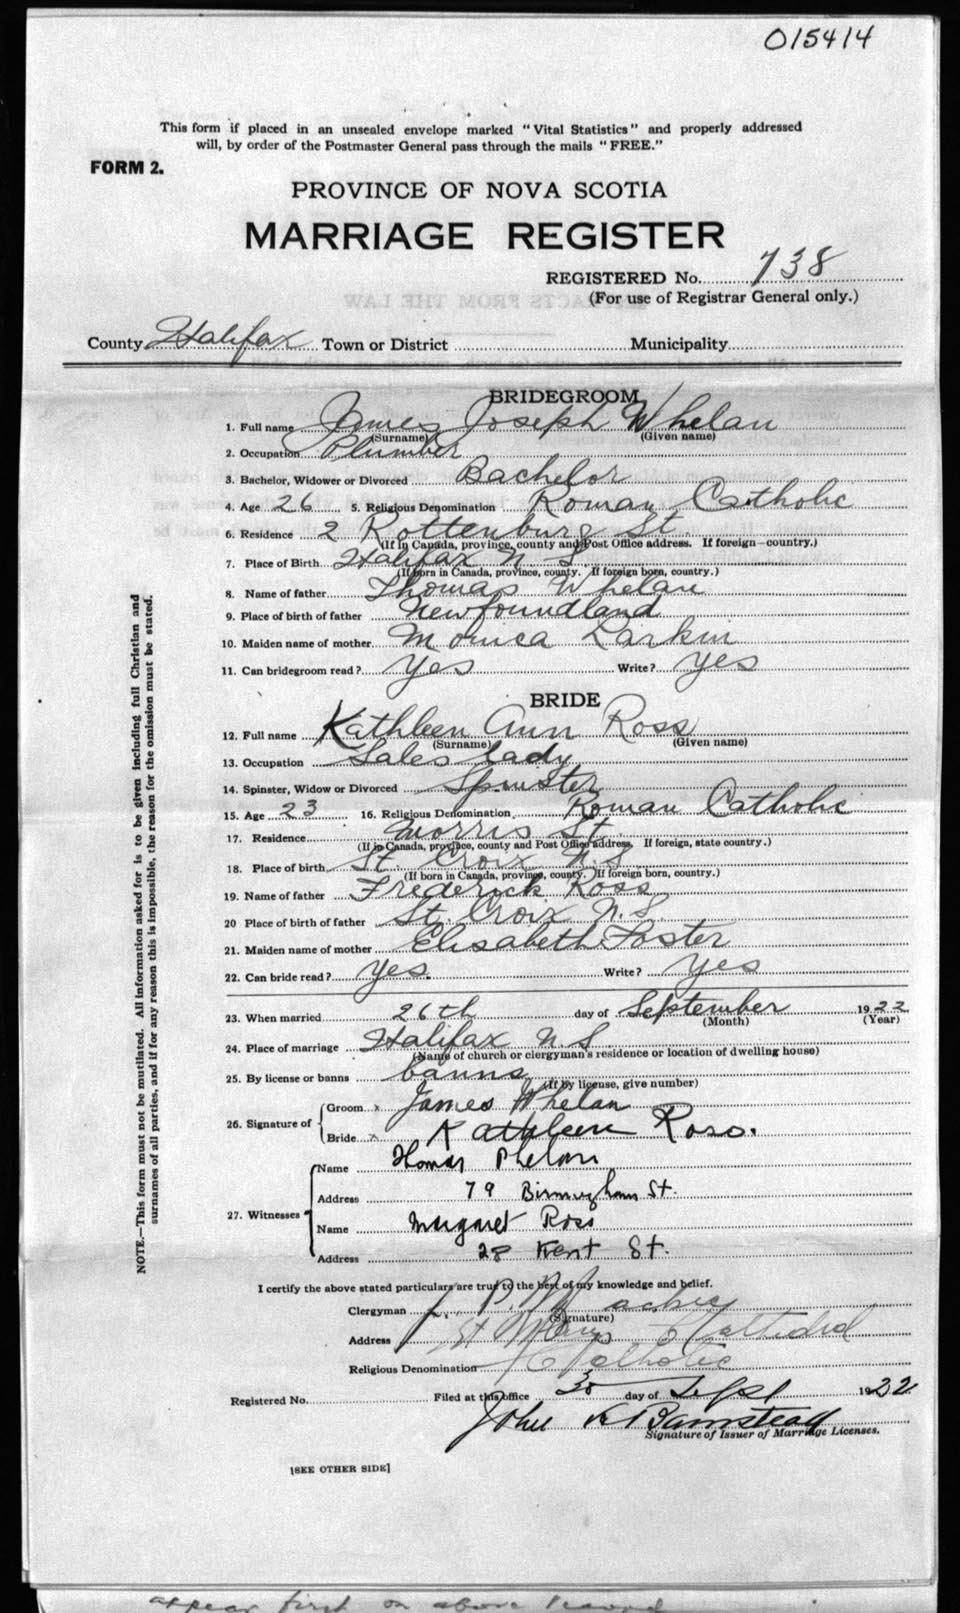 015414
This form if placed in an unsealed envelope marked "Vital Statistics" and properly addressed
will, by order of the Postmaster General pass through the mails "FREE."
FORM 2.
PROVINCE OF NOVA SCOTIA
MARRIAGE REGISTER
REGISTERED No. 738
(For use of Registrar General only.)
County Halifax Town or District Municipality
BRIDEGROOM
1. Full name James Joseph Whelan
(Surname) (Given name)
2. Occupation Plumber
3. Bachelor, Widower or Divorced Bachelor
4. Age 26 5. Religious Denomination Roman Catholic
6. Residence 2 Rottenburg St.
(If in Canada, province, county and Post Office address. If foreign—country.)
7. Place of Birth Halifax N S
(If born in Canada, province, county. If foreign born, country.)
8. Name of father Thomas Whelan
9. Place of birth of father Newfoundland
10. Maiden name of mother Monica Larkin
11. Can bridegroom read? Yes Write? Yes
BRIDE
12. Full name Kathleen Ann Ross
(Surname) (Given name)
13. Occupation Sales lady
14. Spinster, Widow or Divorced Spinster
15. Age 23 16. Religious Denomination Roman Catholic
17. Residence Morris St.
(If in Canada, province, county and Post Office address, If foreign, state country.)
18. Place of birth St. Croix N.S
(If born in Canada, province, county. If foreign born, country.)
19. Name of father Frederick Ross
20 Place of birth of father St. Croix N.S.
21. Maiden name of mother Elisabeth Foster
22. Can bride read? Yes. Write? Yes
23. When married 26th day of September 1922
(Month) (Year)
24. Place of marriage Halifax N S
(Name of church or clergyman's residence or location of dwelling house)
25. By license or banns banns
(If by license, give number)
26. Signature of Groom x James Whelan
Bride x Kathleen Ross.
27. Witnesses Name Thomas Phelan
Address 79 Birmingham St.
Name Margaret Ross
Address 28 Kent St.
I certify the above stated particulars are true to the best of my knowledge and belief.
Clergyman
(Signature)
Address St Marys Cathedral
Religious Denomination Catholic
Registered No. Filed at this office 30 day of Sept 1922
John
Signature of Issuer of Marriage Licenses.
[SEE OTHER SIDE]
NOTE.—This form must not be mutilated. All information asked for is to be given including full Christian and
surnames of all parties, and if for any reason this is impossible, the reason for the omission must be stated.
appear first on above record